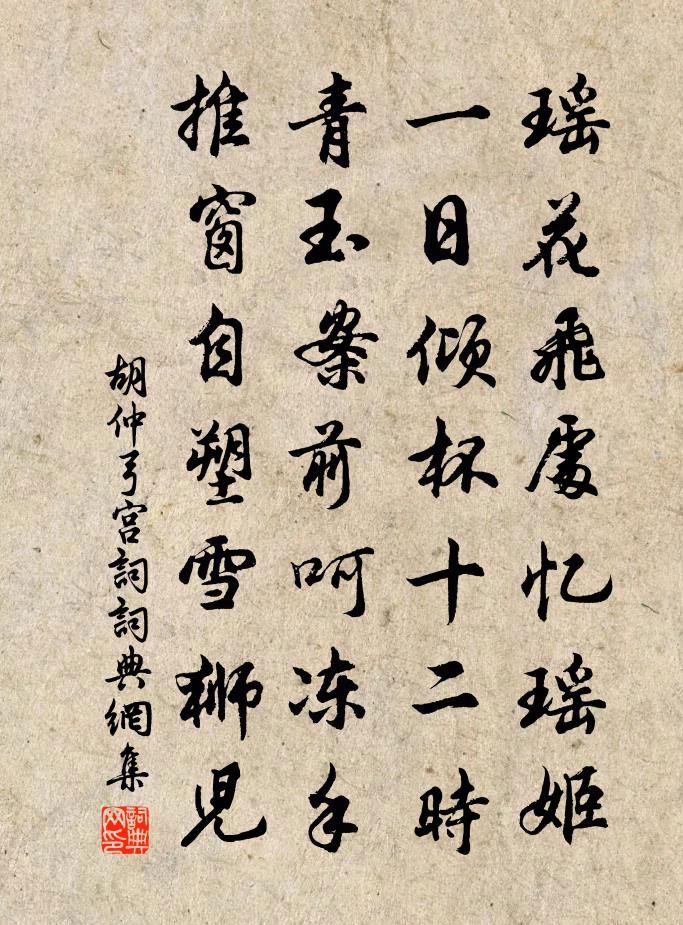 瑶花飛處忆瑶姬
一日倾杯十二時
青玉案前呵冻手
推窗自塑雪狮児
胡仲弓宫詞詞典網集
詞典網印